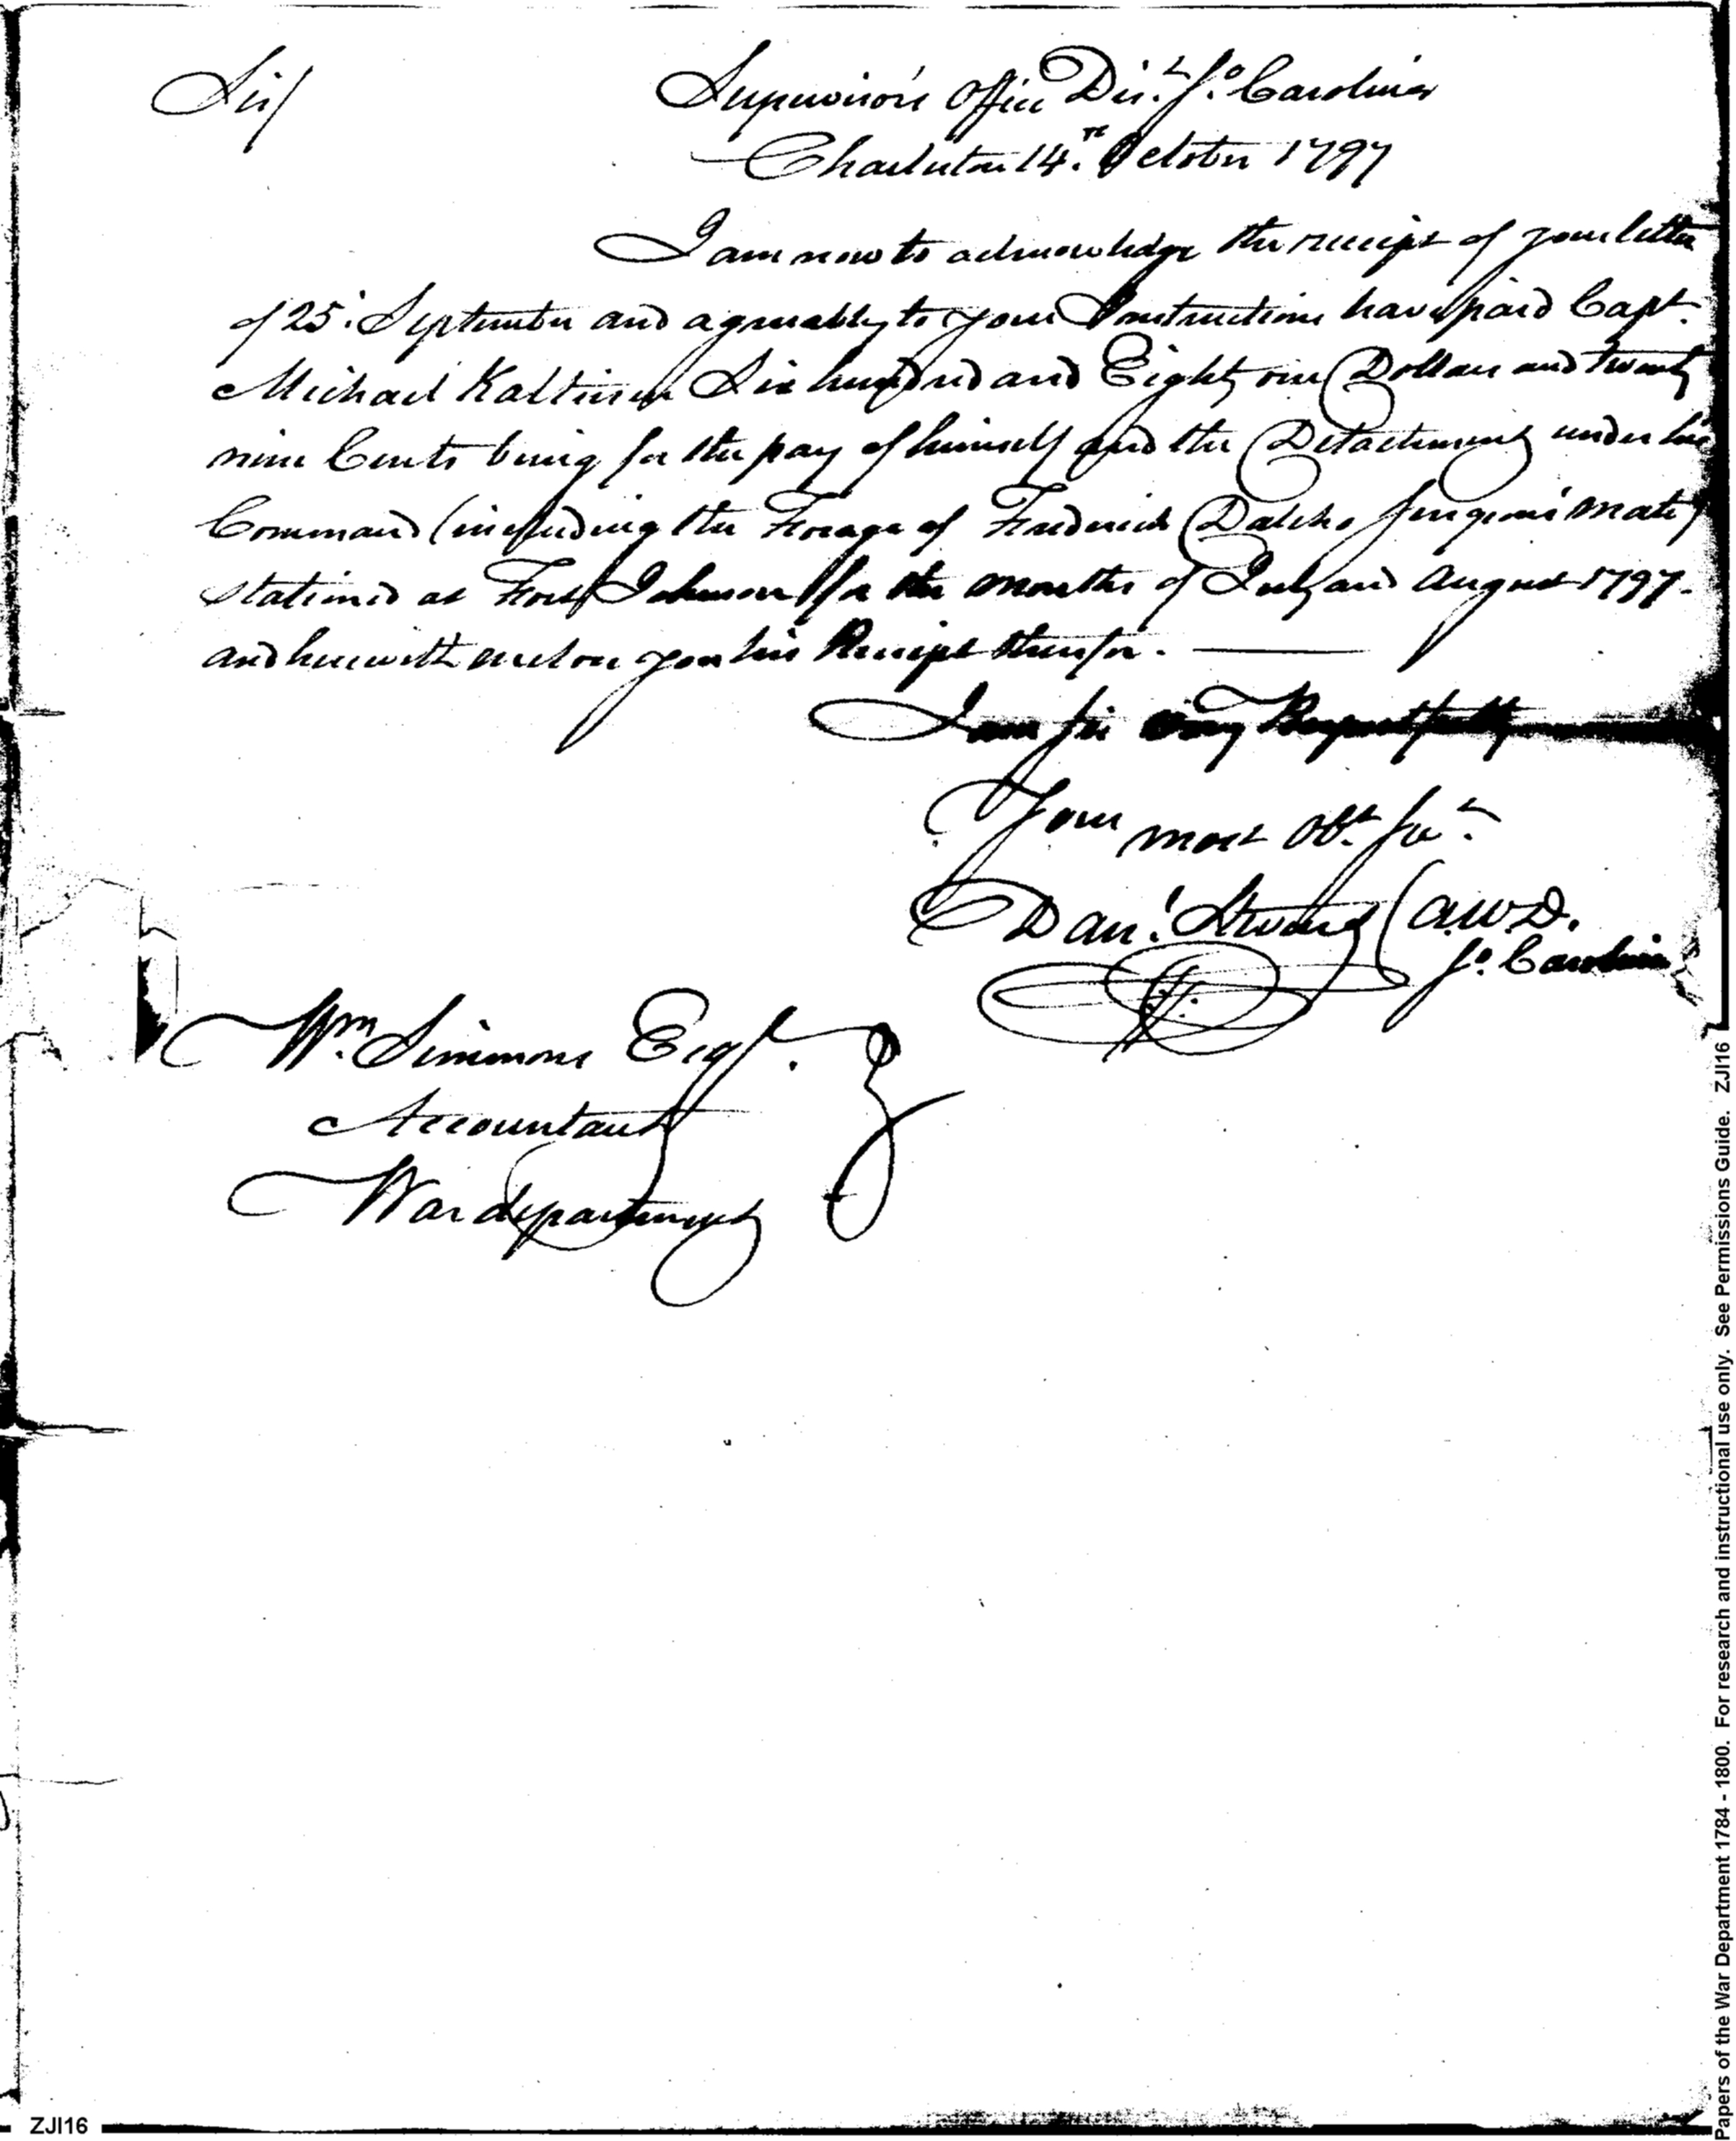 Sir/
Supervisor's Office Dist. So. Carolina
Charleston 14.th October 1797
I am now to acknowledge the receipt of your letter
of 25. September and agreeably to your Instructions have paid Capt.
Michael Kalteisen Six hundred and Eighty one Dollars and twenty
nine Cents being for the pay of himself and the Detachment under his
Command (including the Forage of Frederick Dalcho Surgeons mate)
stationed at Fort Johnson for the months of July and August 1797.
and herewith enclose you his Receipt therefor.
I am Sir very Respectfully
Your most Obt. Svt.
Danl. Stevens (A.W.D.
So. Carolina
Wm. Simmons Esqr.
Accountant
War department
ZJI16
Papers of the War Department 1784 - 1800. For research and instructional use only. See Permissions Guide. ZJI16